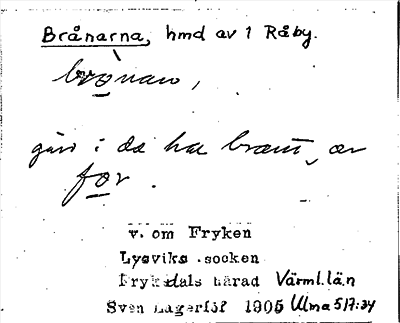 Brånarna, hmd av 1 Råby.
brònaɷ,
gård i da ha brant, ær
for.
v. om Fryken
Lysviks socken
Fryksdals härad Värml. län
Sven Lagerlöf 1905 Ulma 5/7:34